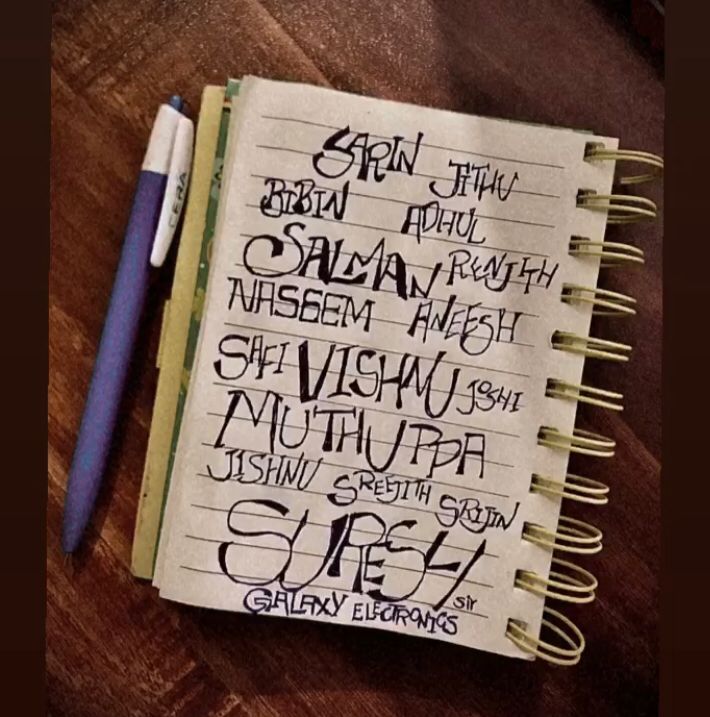 SARIN JITHU
BIBIN ADHUL
SALMAN RENJITH
NASEEM ANEESH
SAFI VISHNU JOSHI
MUTHUPPA
JISHNU SREEJITH SRIJIN
SURESH sir
GALAXY ELECTRONICS
CERA